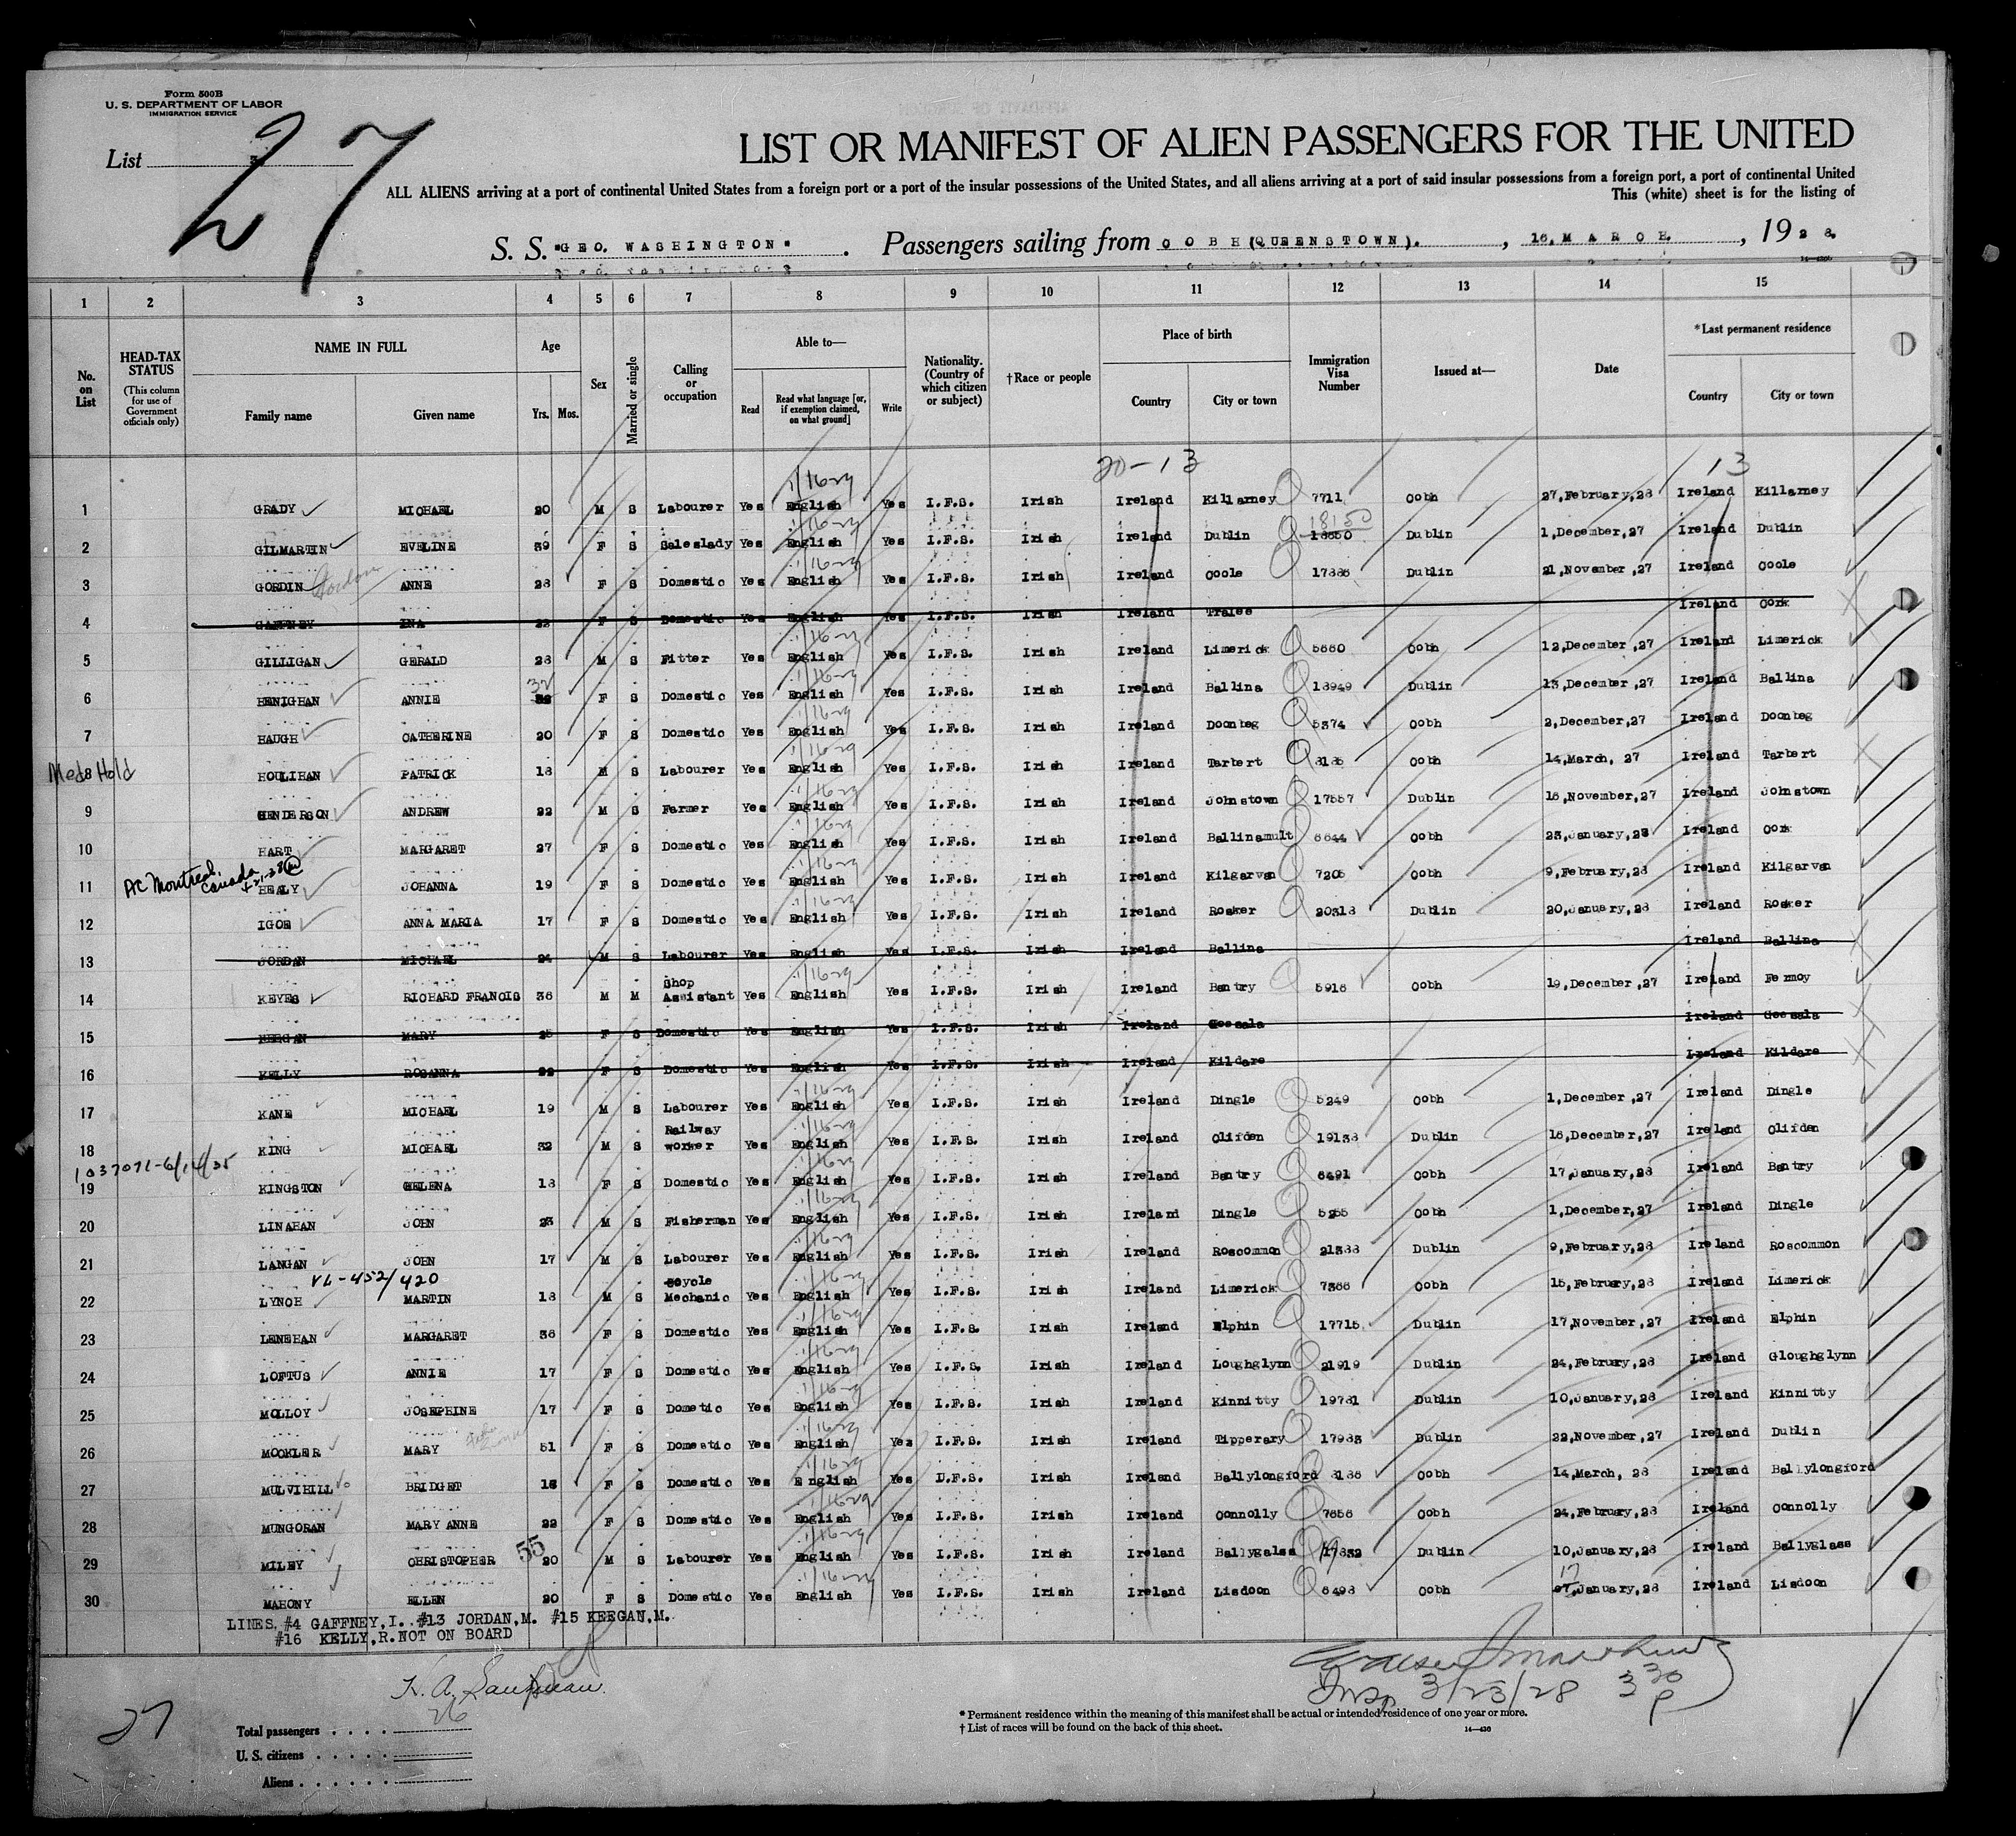 Form 500B
U. S. DEPARTMENT OF LABOR
IMMIGRATION SERVICE
27
List 3
LIST OR MANIFEST OF ALIEN PASSENGERS FOR THE UNITED
ALL ALIENS arriving at a port of continental United States from a foreign port or a port of the insular possessions of the United States, and all aliens arriving at a port of said insular possessions from a foreign port, a port of continental United
This (white) sheet is for the listing of
S. S. "GEO. WASHINGTON". Passengers sailing from COBH (QUEENSTOWN)., 16, MARCH, 1928.
1 2 3 4 5 6 7 8 9 10 11 12 13 14 15
No. on List
HEAD-TAX STATUS (This column for use of Government officials only)
NAME IN FULL Family name Given name
Age Yrs. Mos.
Sex
Married or single
Calling or occupation
Able to— Read Read what language [or, if exemption claimed, on what ground] Write
Nationality. (Country of which citizen or subject)
†Race or people
Place of birth Country City or town
Immigration Visa Number
Issued at—
Date
*Last permanent residence Country City or town
20-13 13
1 GRADY MICHAEL 20 M S Labourer Yes English Yes I.F.S. Irish Ireland Killarney 7711 Cobh 27,February,28 Ireland Killarney
2 GILMARTIN EVELINE 39 F S Saleslady Yes English Yes I.F.S. Irish Ireland Dublin 18150 Dublin 1,December,27 Ireland Dublin
3 GORDIN Gordon ANNE 28 F S Domestic Yes English Yes I.F.S. Irish Ireland Coole Dublin 21,November,27 Ireland Coole
4 GAFFNEY INA 22 F S Domestic Yes English Yes I.F.S. Irish Ireland Tralee Ireland Cork
5 GILLIGAN GERALD 28 M S Fitter Yes English Yes I.F.S. Irish Ireland Limerick Cobh 12,December,27 Ireland Limerick
6 HENIGHAN ANNIE 32 F S Domestic Yes English Yes I.F.S. Irish Ireland Ballina 18949 Dublin 13,December,27 Ireland Ballina
7 HAUGH CATHERINE 20 F S Domestic Yes English Yes I.F.S. Irish Ireland Doonbeg 5374 Cobh 2,December,27 Ireland Doonbeg
Med Hold 8 HOULIHAN PATRICK 18 M S Labourer Yes English Yes I.F.S. Irish Ireland Tarbert Cobh 14,March, 27 Ireland Tarbert
9 HENDERSON ANDREW 22 M S Farmer Yes English Yes I.F.S. Irish Ireland Johnstown 17557 Dublin 18,November,27 Ireland Johnstown
10 HART MARGARET 27 F S Domestic Yes English Yes I.F.S. Irish Ireland Ballinamult 6644 Cobh 23,January,28 Ireland Cork
11 HEALY JOHANNA 19 F S Domestic Yes English Yes I.F.S. Irish Ireland Kilgarvan 7205 Cobh 9,February,28 Ireland Kilgarvan
12 IGOE ANNA MARIA 17 F S Domestic Yes English Yes I.F.S. Irish Ireland Rosker 20318 Dublin 20,January,28 Ireland Rosker
13 JORDAN MICHAEL 24 M S Labourer Yes English Yes I.F.S. Irish Ireland Ballina Ireland Ballina
14 KEYES RICHARD FRANCIS 36 M M Shop Assistant Yes English Yes I.F.S. Irish Ireland Bantry 5916 Cobh 19,December,27 Ireland Fermoy
15 KEEGAN MARY 25 F S Domestic Yes English Yes I.F.S. Irish Ireland Geesala Ireland Geesala
16 KELLY ROSANNA 22 F S Domestic Yes English Yes I.F.S. Irish Ireland Kildare Ireland Kildare
17 KANE MICHAEL 19 M S Labourer Yes English Yes I.F.S. Irish Ireland Dingle 5249 Cobh 1,December,27 Ireland Dingle
18 KING MICHAEL 32 M S Railway worker Yes English Yes I.F.S. Irish Ireland Clifden 19138 Dublin 16,December,27 Ireland Clifden
1037071-6/14/35
19 KINGSTON HELENA 18 F S Domestic Yes English Yes I.F.S. Irish Ireland Bantry 6491 Cobh 17,January,28 Ireland Bantry
20 LINAHAN JOHN 23 M S Fisherman Yes English Yes I.F.S. Irish Ireland Dingle 5255 Cobh 1,December,27 Ireland Dingle
21 LANGAN JOHN 17 M S Labourer Yes English Yes I.F.S. Irish Ireland Roscommon 21388 Dublin 9,February,28 Ireland Roscommon
VL-452/420
22 LYNCH MARTIN 18 M S Cycle Mechanic Yes English Yes I.F.S. Irish Ireland Limerick 7366 Cobh 15,February,28 Ireland Limerick
23 LENEHAN MARGARET 36 F S Domestic Yes English Yes I.F.S. Irish Ireland Elphin 17715 Dublin 17,November,27 Ireland Elphin
24 LOFTUS ANNIE 17 F S Domestic Yes English Yes I.F.S. Irish Ireland Loughglynn 21919 Dublin 24,February,28 Ireland Gloughglynn
25 MOLLOY JOSEPHINE 17 F S Dometic Yes English Yes I.F.S. Irish Ireland Kinnitty 19781 Dublin 10,January,28 Ireland Kinnitty
26 MOCKLER MARY 51 F S Domestic Yes English Yes I.F.S. Irish Ireland Tipperary 17983 Dublin 22,November,27 Ireland Dublin
27 MULVIHILL BRIDGET 18 F S Domestic Yes English Yes I.F.S. Irish Ireland Ballylongford 8186 Cobh 14,March, 28 Ireland Ballylongford
28 MUNGORAN MARY ANNE 22 F S Domestic Yes English Yes I.F.S. Irish Ireland Connolly 7656 Cobh 24,February,28 Ireland Connolly
55
29 MILEY CHRISTOPHER 20 M S Labourer Yes English Yes I.F.S. Irish Ireland Ballygalss 19832 Dublin 10,January,28 Ireland Ballyglass
30 MAHONY ELLEN 20 F S Domestic Yes English Yes I.F.S. Irish Ireland Lisdoon 6493 Cobh 17,January,28 Ireland Lisdoon
LINES. #4 GAFFNEY,I. #13 JORDAN,M. #15 KEEGAN,M.
#16 KELLY,R. NOT ON BOARD
Insp. 3/23/28 3 30 P
27
26
Total passengers
U. S. citizens
Aliens
* Permanent residence within the meaning of this manifest shall be actual or intended residence of one year or more.
† List of races will be found on the back of this sheet.